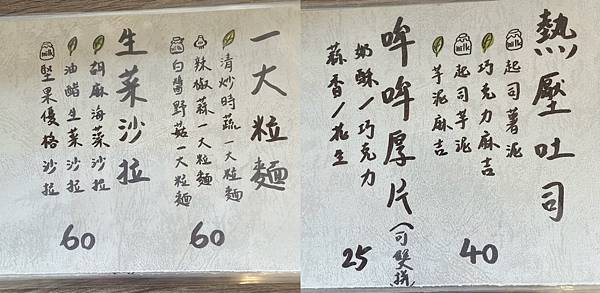 一大粒麵
清炒時蔬一大粒麵
辣椒蒜一大粒麵
milk
白醬野菇一大粒麵
60
生菜沙拉
胡麻海菜沙拉
油醋生菜沙拉
milk
堅果優格沙拉
60
熱壓吐司
milk
起司薯泥
巧克力麻吉
milk
起司芋泥
芋泥麻吉
40
哞哞厚片(可雙拼)
奶酥/巧克力
蒜香/花生
25